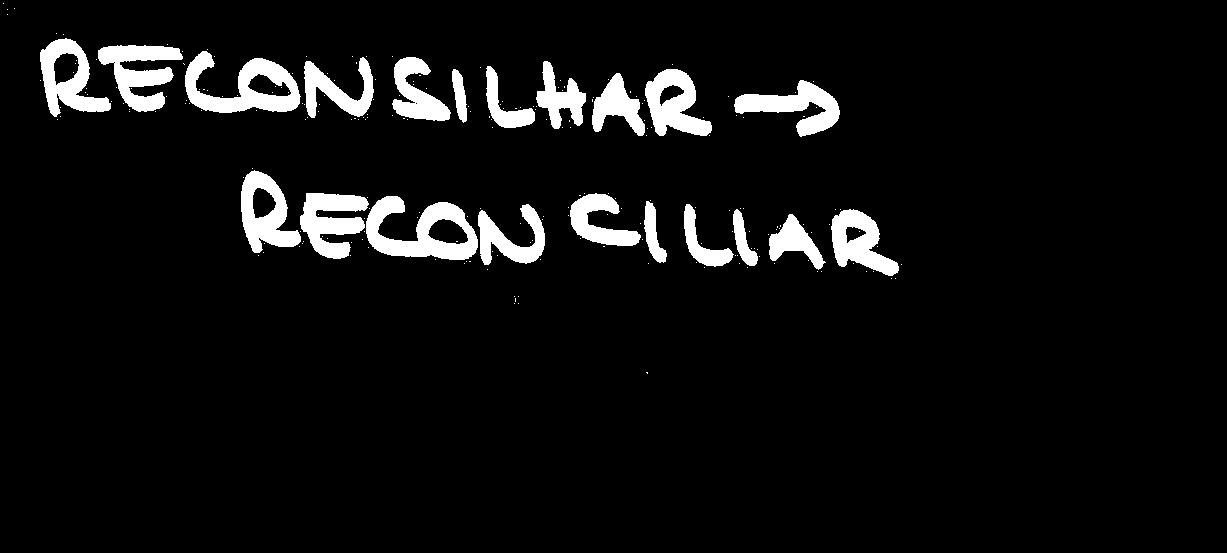 RECONSILHAR →
RECONCILIAR